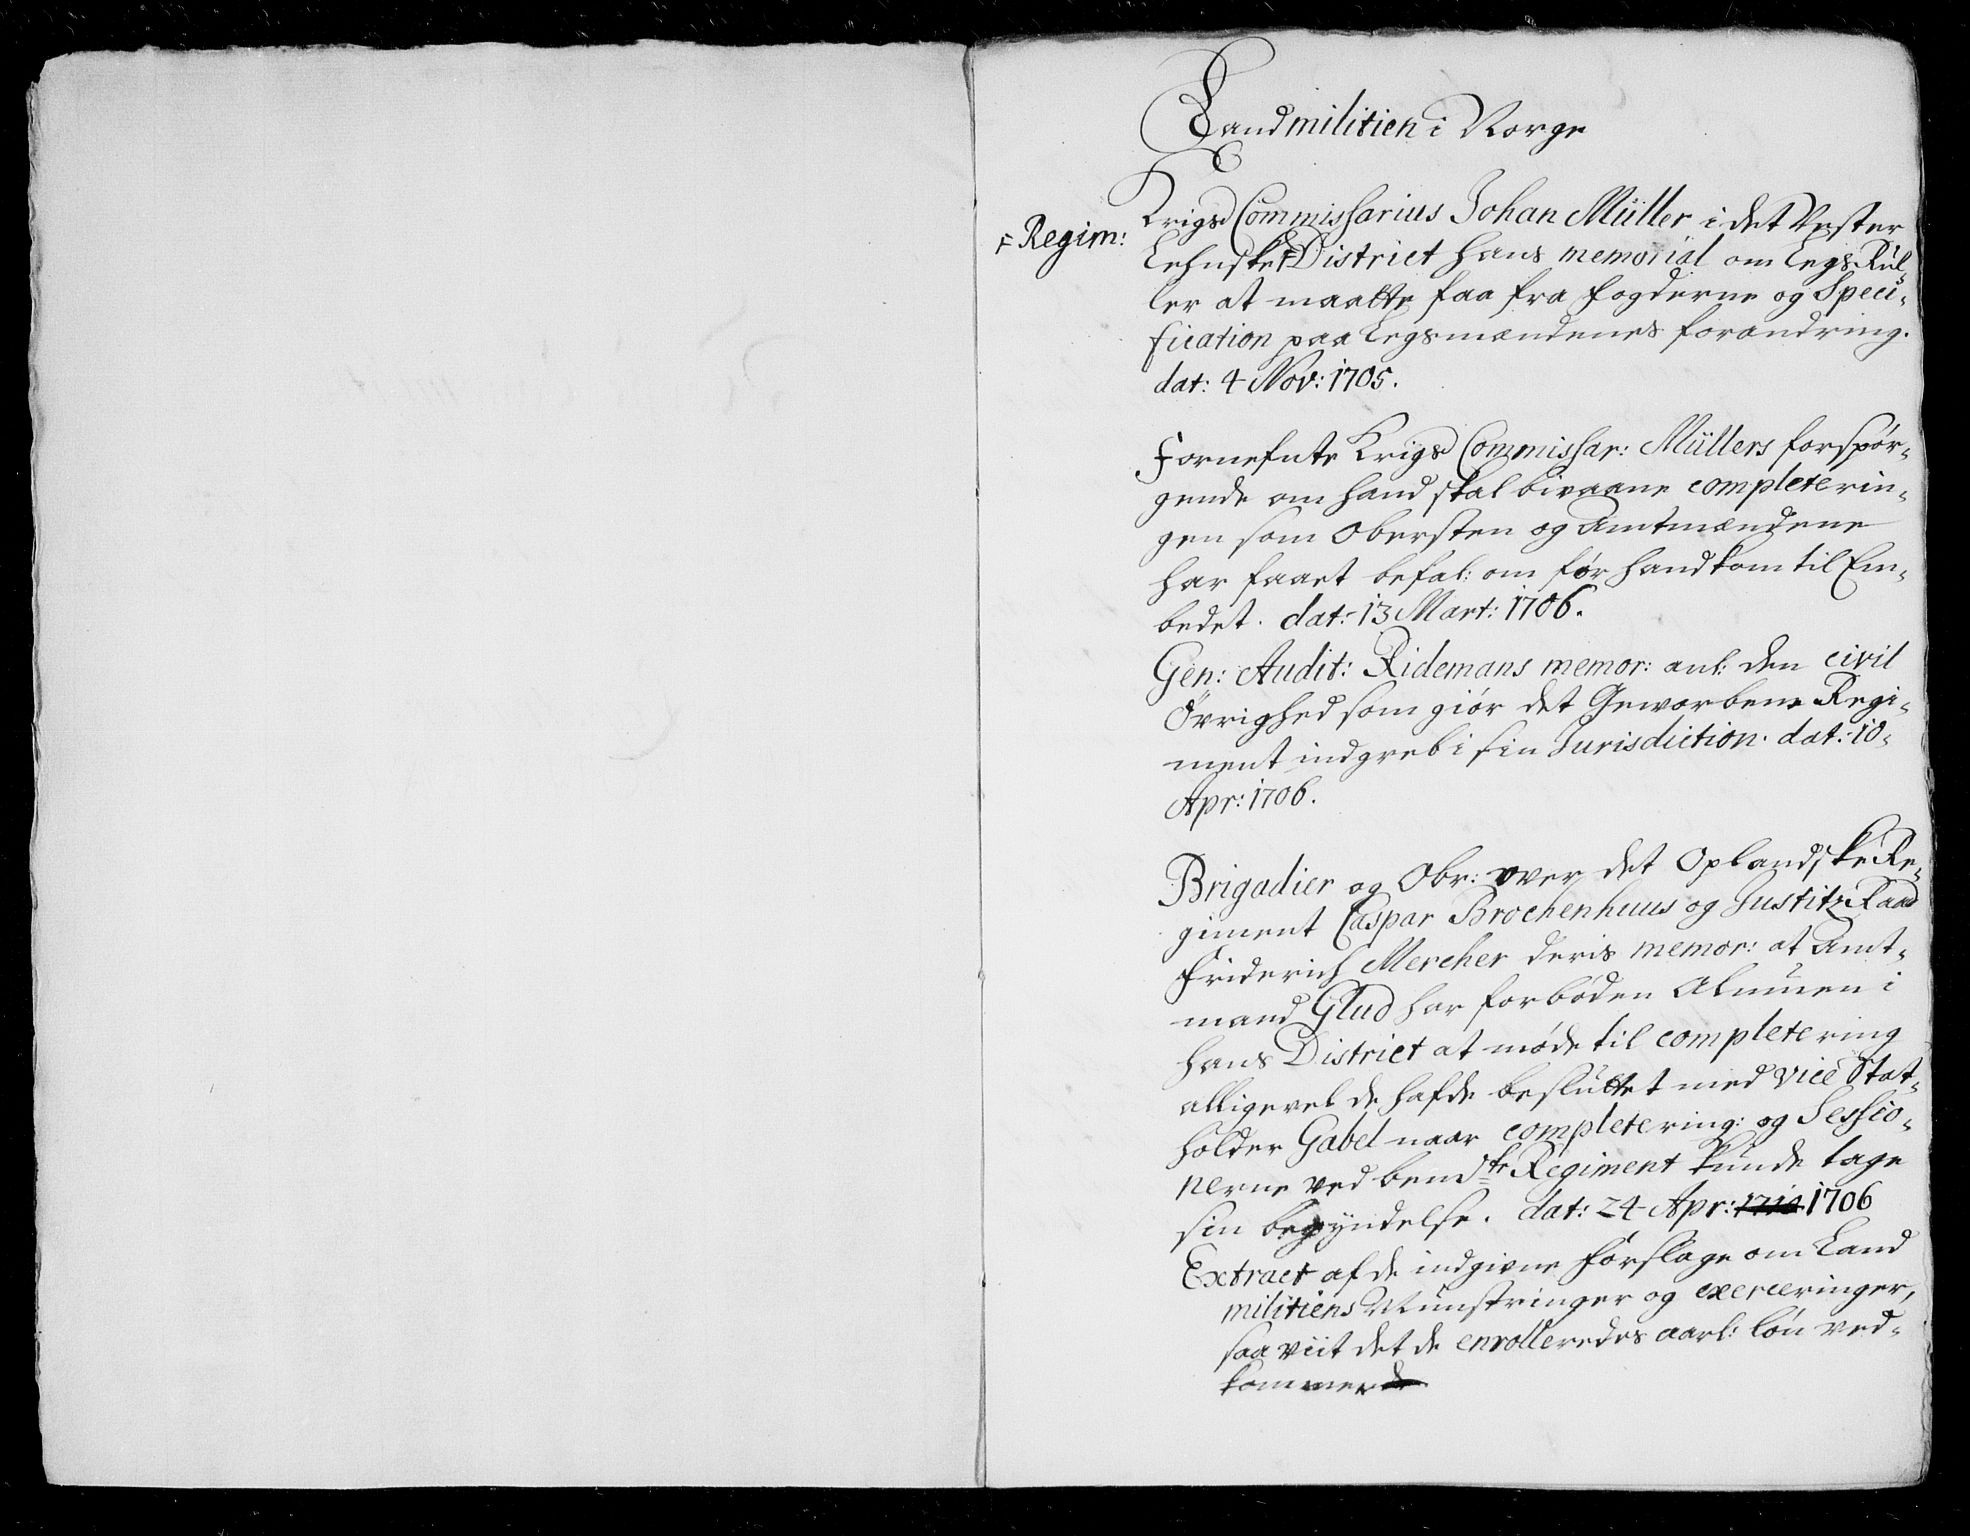 Landmilitien i Norge
Krigs Commissarius Johan Müller i det Vester
⨍ Regim:
Lehnske⨍ District hans memorial om Legs Rul-
ler at maatte faa fra fogderne og Speci-
fication paa Legsmændenes forandring.
dat: 4 Nov: 1705.
Fornefnte Krigs Commissar: Müllers forspør-
gende om hand skal bivaane completerin-
gen som Obersten og Amtmændene
har faaet befal: om før hand kom til Em-
bedet. dat: 13 Mart: 1706.
Gen: Audit: Ridemans memor: anl: den civil
Øvrighed som giør det Geworbene Regi-
ment indgreb i sin Jurisdiction. dat: 10.
Apr: 1706.
Brigadier og Obr: over det Oplandske Re-
giment Caspar Brochenhuus og Justitz Raad
Friderich Mercher deris memor: at Amt-
mand Glud har forbøden Almuen i
hans District at møde til completering
alligevel de hafde besluttet med vice Stat-
holder Gabel naar completering: og Sessio-
nerne ved bemdte Regiment kunde tage
sin begyndelse. dat: 24 Apr: 1710 1706
Extract af de indgivne forslage om Land
militiens Munstringer og exerceringer,
saa viit det de enrolleredes aarl: løn ved-
kommer